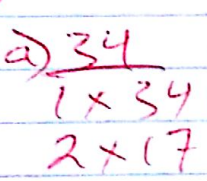 a) 34
1 x 34
2 x 17